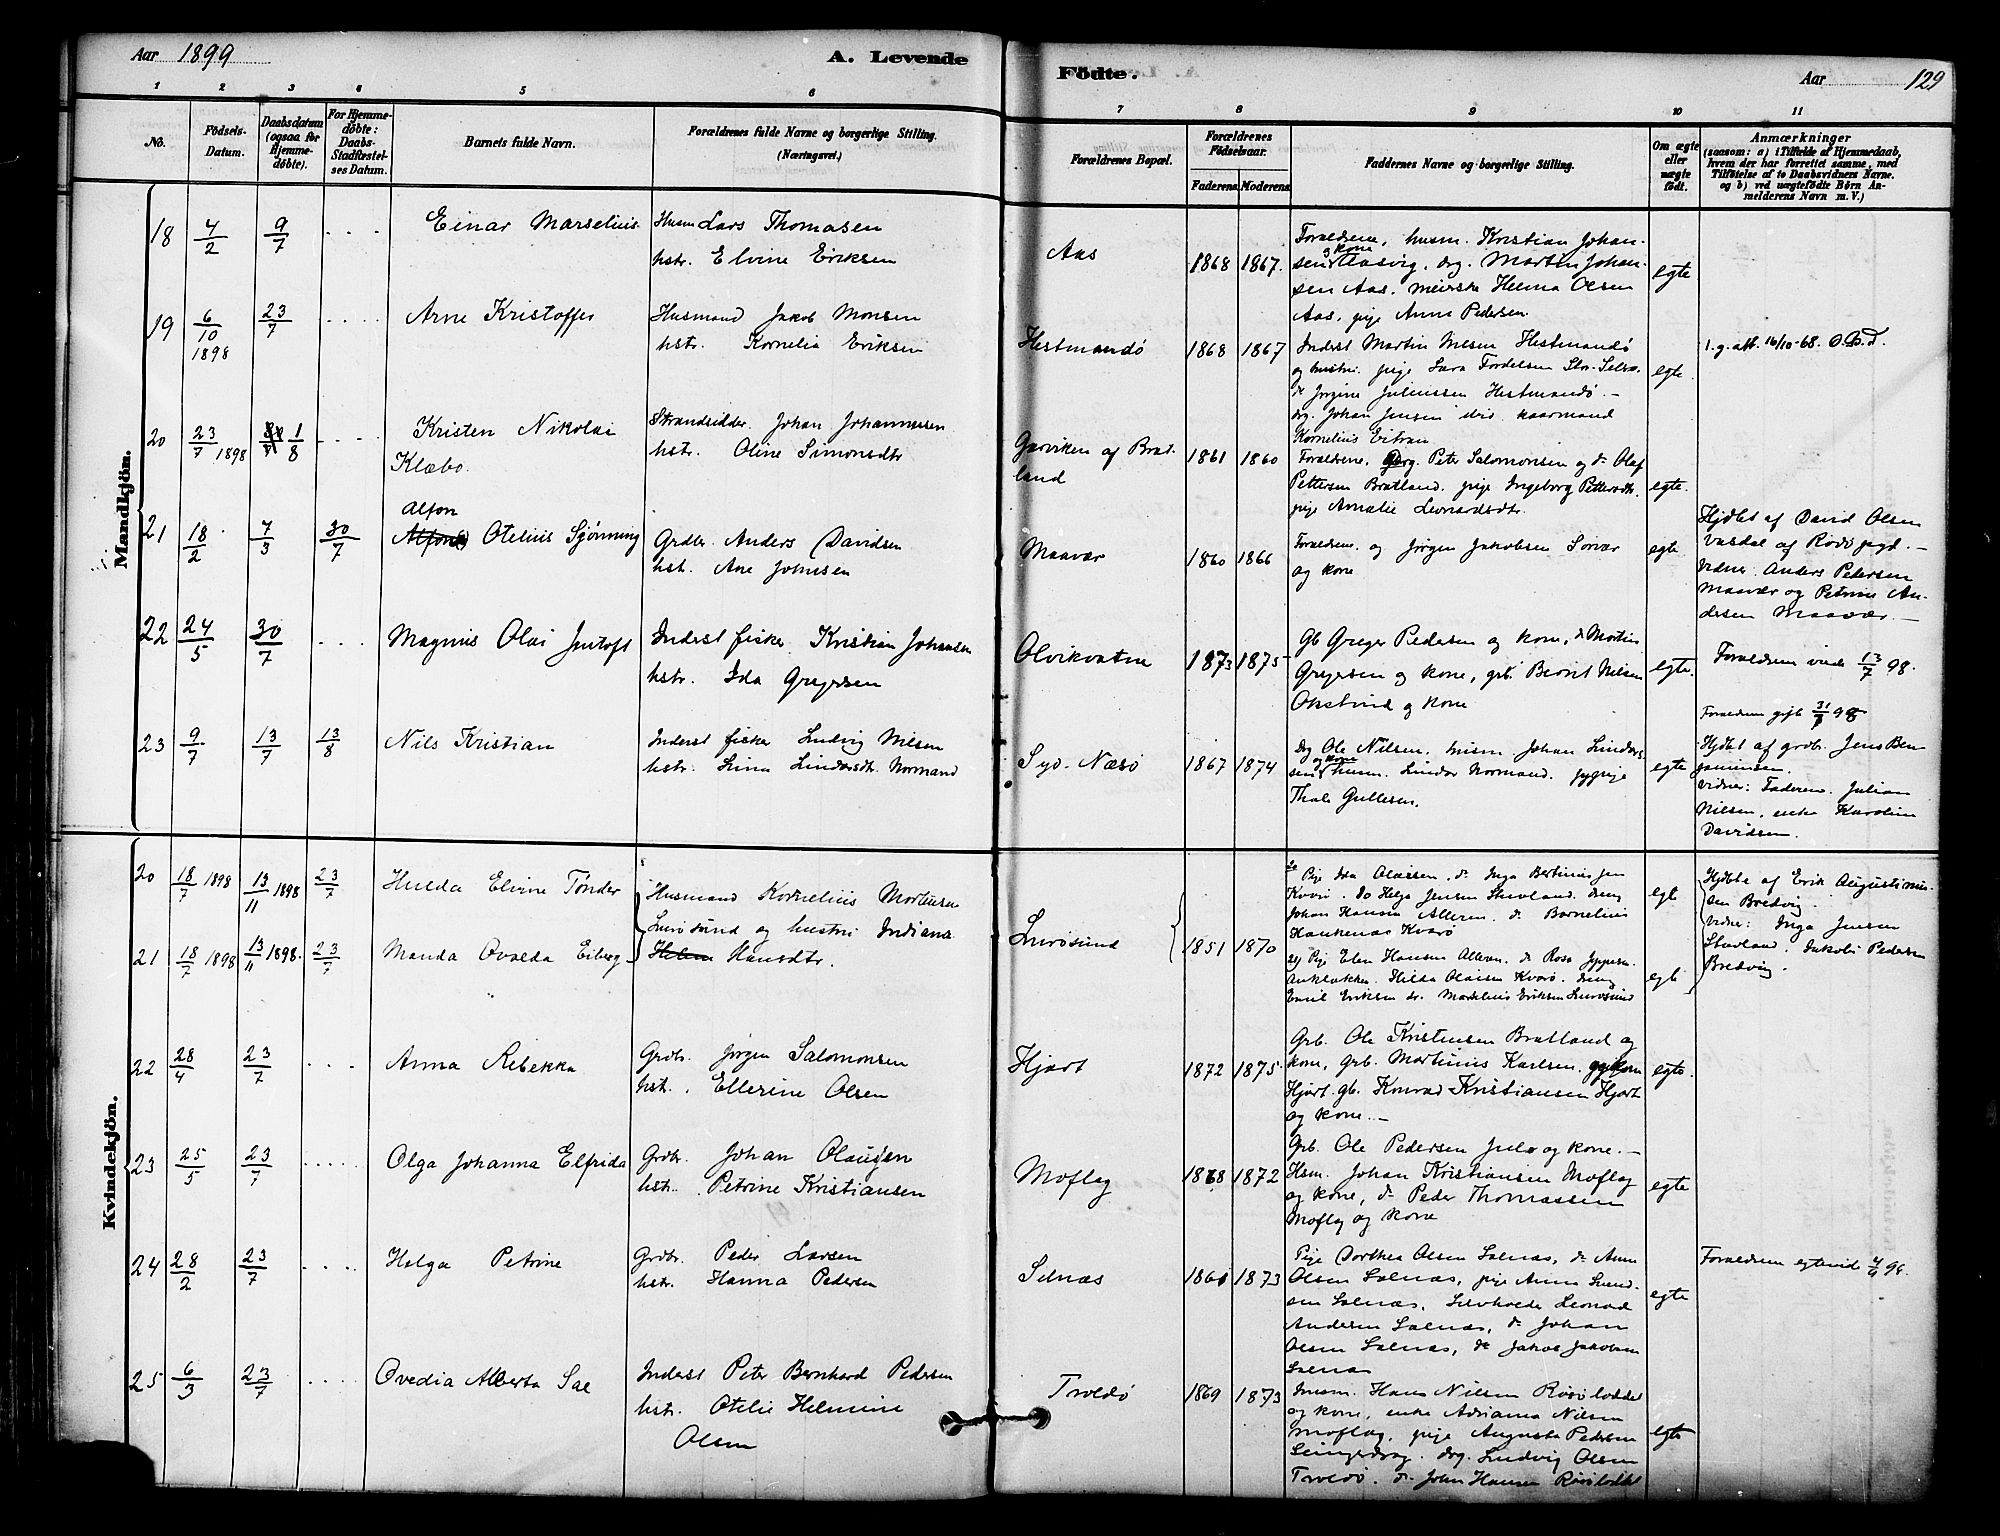 Aar 1899
A. Levende
Födte.
Aar
129
1 2 3 4 5 6 7 8 9 10 11
No.
Födsels-Datum.
Daabsdatum (ogsaa for Hjemmedöbte).
For Hjemmedöbte: Daabs-Stadfæstelses Datum.
Barnets fulde Navn.
Forældrenes fulde Navne og borgerlige Stilling. (Næringsvei.)
Forældrenes Bopæl.
Forældrenes Födselsaar.
Faderens. Moderens.
Faddernes Navne og borgerlige Stilling.
Om ægte eller uægte födt.
Anmærkninger
(saasom: a) i Tilfælde af Hjemmedaab, hvem der har forrettet samme, med Tilföielse af to Daabsvidners Navne, og b) ved uægtefödte Börn Anmelderens Navn m. V.)
Mandkjön.
18 4/2 9/7 .... Einar Marselius
Husm Lars Thomasen
hstr. Elvine Eriksen
Aas 1868 1867.
Forældrene, husm. Kristian Johan-
sen og kone Aasvig, drg. Martin Johan-
sen Aas, meierske Helma Olsen
Aas, pige Anne Pedersen.
egte
19 6/10 1898 23/7 .... Arne Kristoffer
Husmand Jakob Monsen
hstr. Kornelia Eriksen
Hestmandö 1868 1867
Inderst Martin Nilsen Hestmandö
og hustru. pige Sara Fordelsen Stor-Selsø.
d. Jørgine Juliussen Hestmandö. –
drg. Johan Jensen ibid. kaarmand
Kornelius Eitran
egte.
1. g. att. 16/10-68. O.B.D.
20 23/7 1898 1/8 .... Kristen Nikolai
Klæbo.
Strandsidder Johan Johannessen
hstr. Oline Simonsdtr
Garviken af Brat-
land 1861 1860
Forældrene, drg. Peter Salomonsen og d. Olaf
Pettersen Bratland. pige Ingeborg Pettersdtr.
pige Amalie Leonardsdtr.
egte.
21 18/2 7/3 30/7 Alfon
Otelius Sjønning
Grdbr. Anders Davidsen
hst. Ane Johnsen
Maavær 1860 1866
Forældrene. og Jørgen Jakobsen Sørvær
og kone
egte
Hjdbt af David Olsen
Vasdal af Rödö pgd. –
vidner. Anders Pedersen
Maavær og Petrine An-
dersen Maavær. –
22 24/5 30/7 .... Magnus Olai Justoft
Inderst fisker Kristian Johansen
hstr. Ida Gregersen
Olvikvatne 1873 1875
Gb Greger Pedersen og kone, d. Martin
Gregersen og kone, grb. Beront Nilsen
Okstind og kone
egte.
Forældrene viede 13/7 98.
23 9/7 13/7 13/8 Nils Kristian
Inderst fisker Ludvig Nilsen
hstr. Lina Lindorsdtr. Normand
Syd-Næsö 1867 1874
drg Ole Nilsen, husm. Johan Lindors-
sen og kone husm. Lindor Normand. pige
Thale Gullesen.
egte
Forældrene gift 31/7 98
Hjdbt af grdbr. Jens Ben-
jaminsen.
vidner: Faderen. Julian
Nilsen, enke Karoline
Davidsen.
Kvindekjön.
20 18/7 1898 13/11 1898 23/7 Hulda Elvine Tönder
Husmand Kornelius Mortensen
Lurösund og hustru Indiana
Pige Ida Olaisen, d. Inga Bertinusjen
Kvarö. do Helga Jensen Stuvland. dreng
Johan Hansen Alleren. d. Bornelius
Haukenæs Kvarö
egt
Hjdbte af Erik Augustinus-
sen Bredvig.
vidner: Inga Jensen
Stuvland. Jakob Pedersen
Bredvig.
21 18/7 1898 13/11 1898. 23/7 Manda Ovalda Eiberg
Hansdtr.
Lurösund 1851 1870
Pige Elen Hansen Alleren. d. Rosa Jeppesen
Hilda Olaisen Kvarö. dreng
Emil Eriksen d. Marselius Eriksen Lurösund
egt
22 28/4 23/7 .... Anna Rebekka
Grdbr. Jörgen Salomonsen
hst. Ellerine Olsen
Hjart 1872 1875
Grb. Ole Kristensen Bratland og
kone, grb. Martinius Karlsen og kone
Hjart. gb. Konrad Kristiansen Hjart
og kone. –
egte.
23 25/5 23/7 ..... Olga Johanna Elfrida
Grdbr. Johan Olausen
hst. Petrine Kristiansen
Moflag 1868 1872
Grb. Ole Pedersen Julø og kone. –
Hsm. Johan Kristiansen Moflag
og kone, d. Peder Thomassen
Moflag og kone
egte
24 28/2 23/7 .... Helga Petrine
Grdbr. Peder Larsen
hstr. Hanna Pedersen
Selnæs 1861 1873
Pige Dorthea Olsen Selnæs, d. Anne
Olsen Selnæs, pige Anna Lund-
sen Selnæs. Selvholde Leonard
Andersen Selnæs, d. Johan
Olsen Selnæs, d. Jakob Jakobsen
Selnæs
egte
Forældrene egteviet 4/9 98.
25 6/3 23/7 .... Ovedia Alberta Sæ
Inderst Peter Bernhard Pedersen
hstr. Otelie Helmine
Olsen
Troldö 1869 1873
Husm. Hans Nilsen Rosöloddet
og kone, enke Adriana Nilsen
Moflag, pige Augusta Pedersen
drg. Ludvig Olsen
Troldö. d. John Hansen Rosöloddet
egte